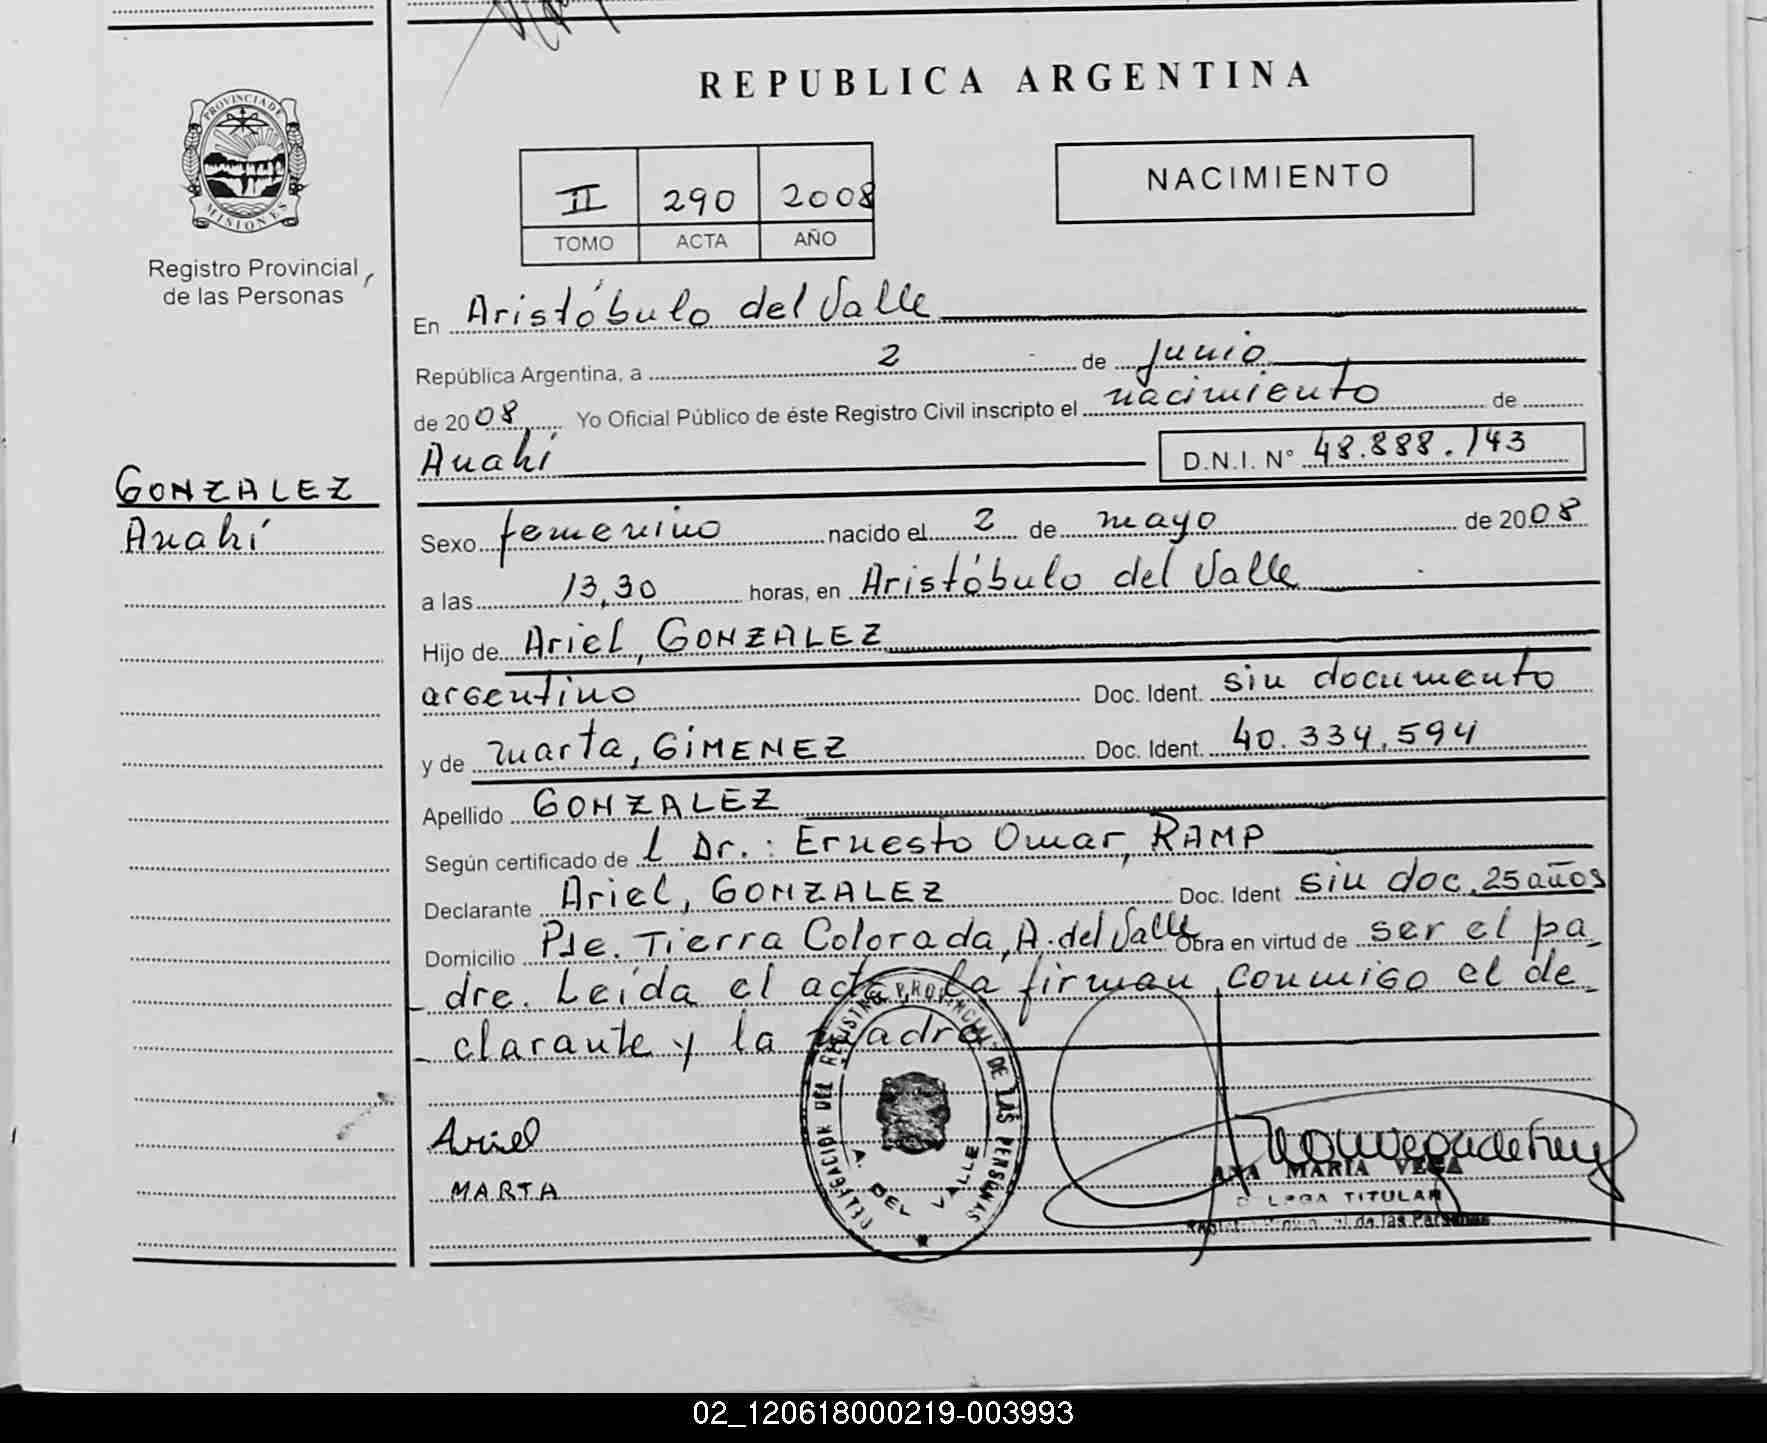 REPUBLICA ARGENTINA
PROVINCIA DE
MISIONES
Registro Provincial
de las Personas
II 290 2008
TOMO ACTA AÑO
NACIMIENTO
En Aristóbulo del Valle
República Argentina, a 2 de junio
de 2008 Yo Oficial Público de éste Registro Civil inscripto el nacimiento de
Anahí D.N.I. N° 48.888.143
GONZALEZ
Anahí
Sexo femenino nacido el 2 de mayo de 2008
a las 13,30 horas, en Aristóbulo del Valle
Hijo de Ariel, GONZALEZ
argentino Doc. Ident. sin documento
y de Marta, GiMENEZ Doc. Ident. 40.334.594
Apellido GONZALEZ
Según certificado de l Dr.: Ernesto Omar, RAMP
Declarante Ariel, GONZALEZ Doc. Ident sin doc. 25 años
Domicilio Pje. Tierra Colorada, A. del Valle Obra en virtud de ser el pa_
_ dre. Leída el acta, la firman conmigo el de_
_ clarante y la madre
Ariel
MARTA
DELEGACION DEL REGISTRO PROVINCIAL DE LAS PERSONAS
A. DEL VALLE
ANA MARIA VEGA
TITULAR
de las Personas
02_120618000219-003993